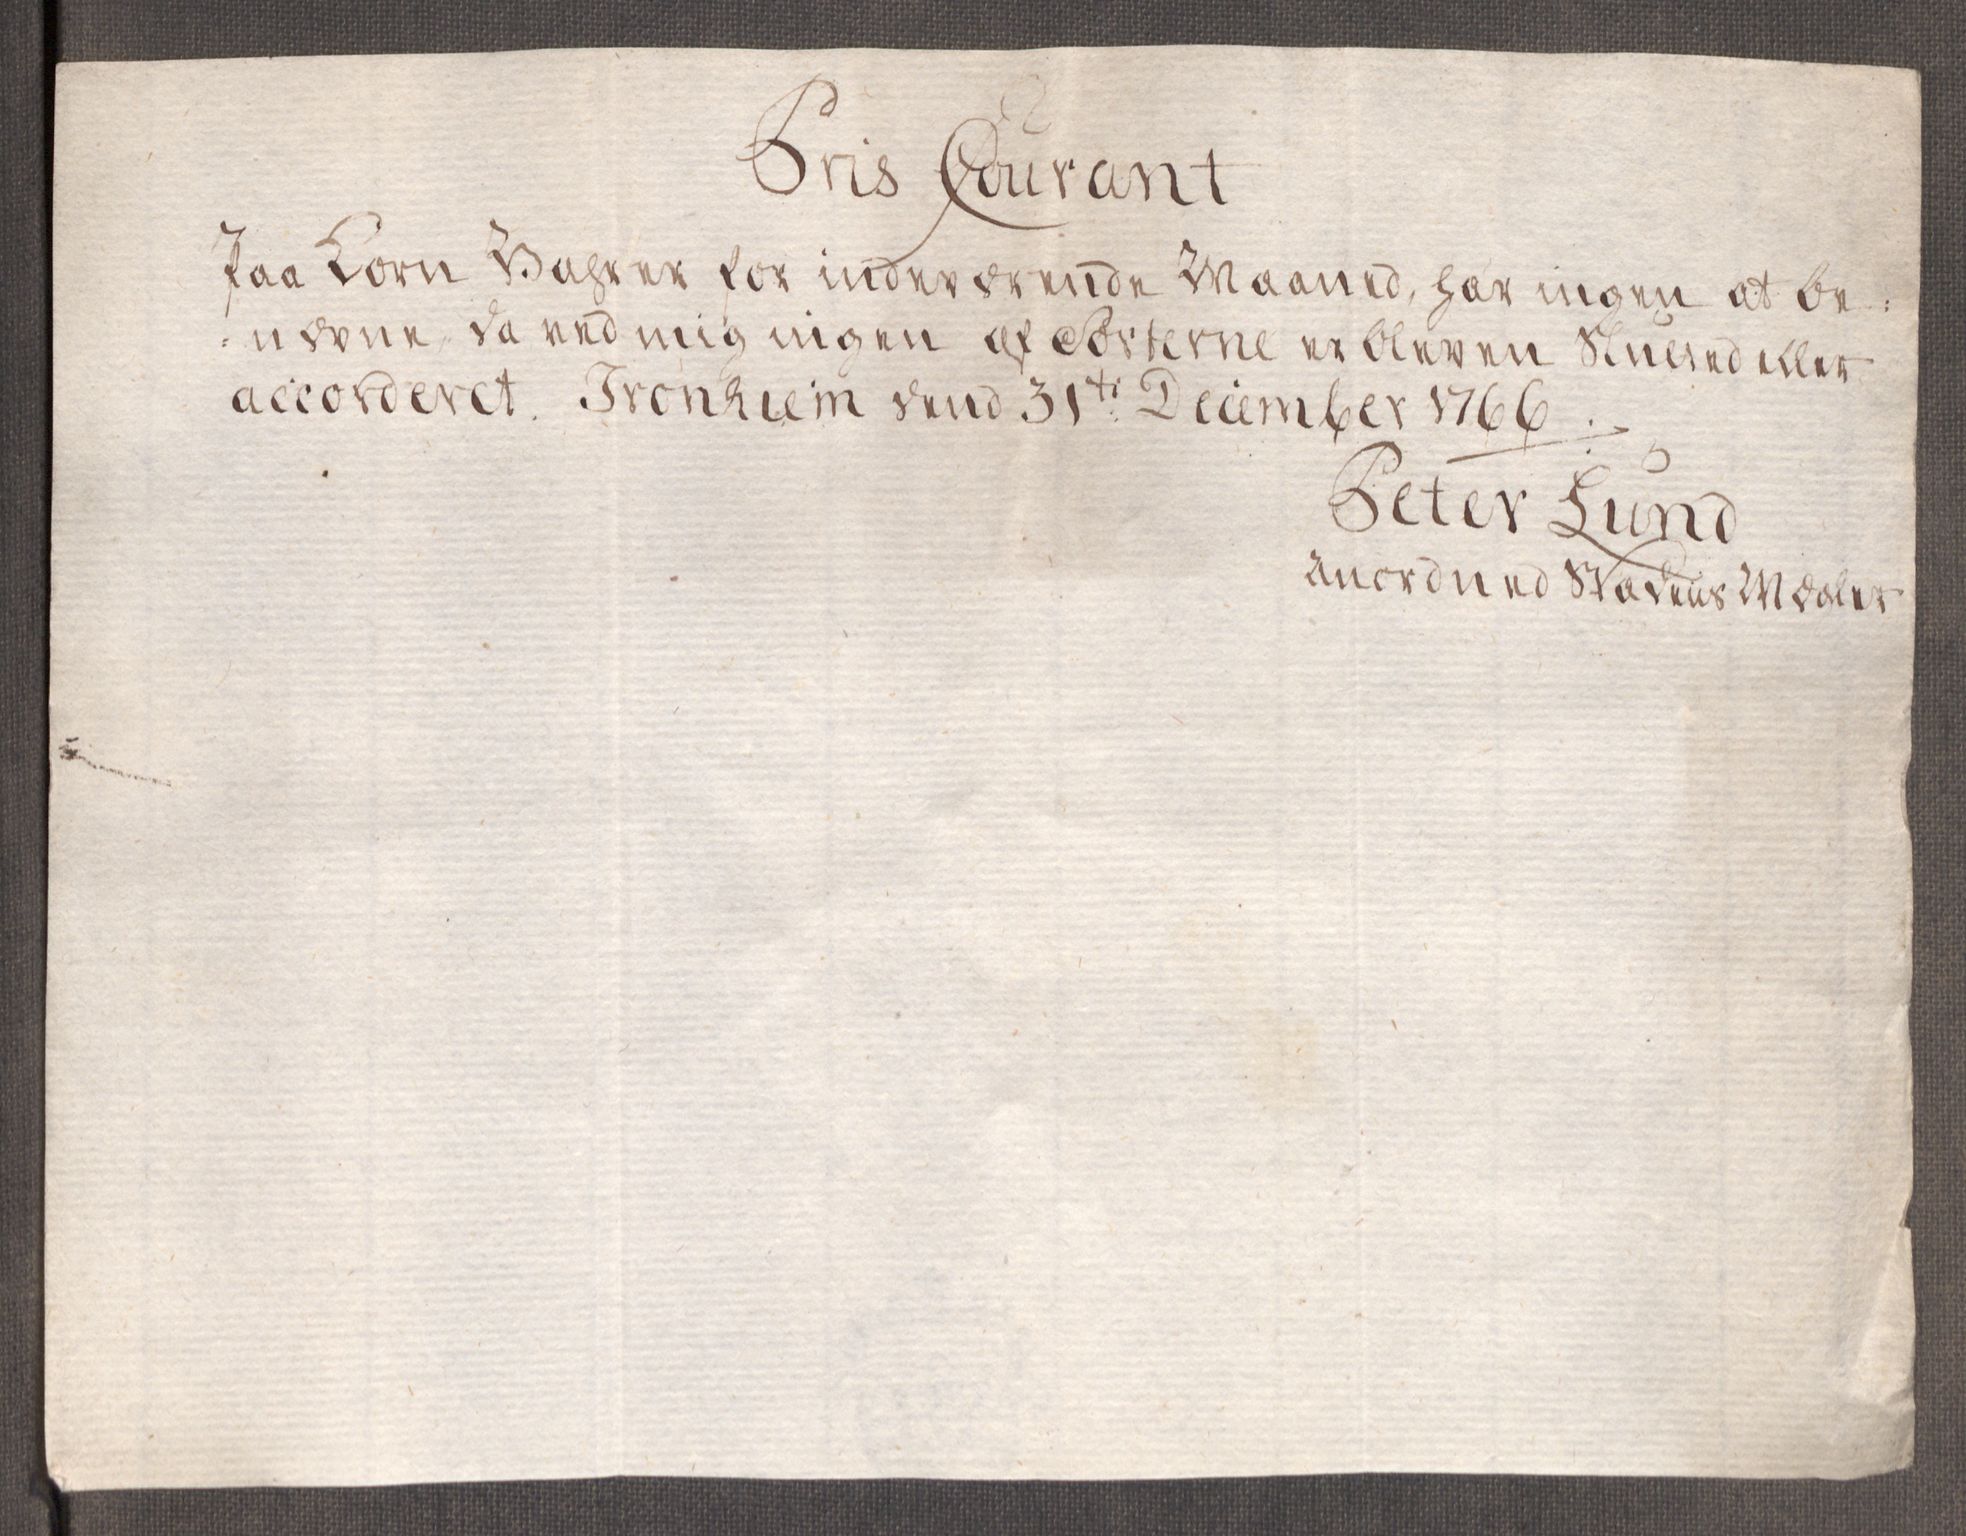 Pris Courant
Paa Korn Vahrer for inderværende Maaned, har ingen at be-
nævne, da ved mig ingen af Sorterne er bleven Sluted eller
accorderet. Tronhiem dend 31te December 1766.
Peter Lund
Anordned Stadens Mægler